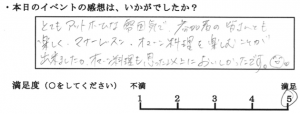 ・本日のイベントの感想は、いかがでしたか？
とてもアットホームな雰囲気で、参加者の皆さんとも
楽しく、マナーレッスン、オマーン料理を楽しむことが
出来ました。オマーン料理も思った以上においしかったです。
満足度（○をしてください） 不満 満足
1 2 3 4 5